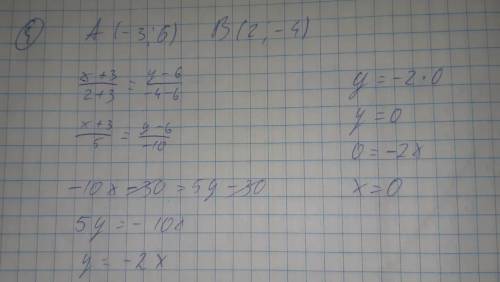 A(-3; 6) B(2; -4)
(x+3)/(2+3) = (y-6)/(-4-6)
(x+3)/5 = (y-6)/(-10)
-10x-30 = 5y-30
5y = -10x
y = -2x
y = -2·0
y = 0
0 = -2x
x = 0